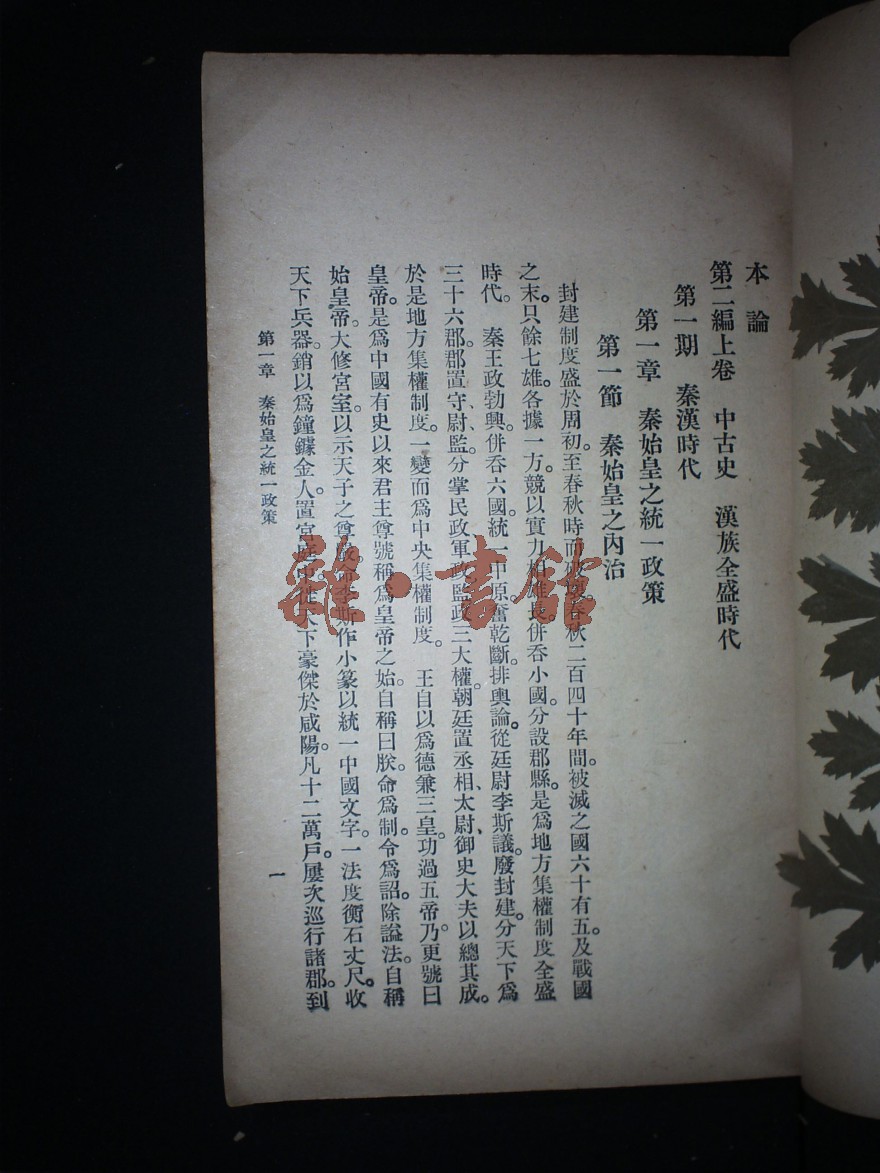 本論
第二編上卷　中古史　漢族全盛時代
第一期　秦漢時代
第一章　秦始皇之統一政策
第一節　秦始皇之內治
封建制度盛於周初。至春秋時而破壞。春秋二百四十年間。被滅之國六十有五。及戰國
之末。只餘七雄。各據一方。競以實力相雄長。併吞小國。分設郡縣。是爲地方集權制度全盛
時代。　秦王政勃興。併吞六國。統一中原。奮乾斷。排輿論。從廷尉李斯議。廢封建。分天下爲
三十六郡。郡置守、尉、監。分掌民政軍政監政三大權。朝廷置丞相、太尉、御史大夫以總其成。
於是地方集權制度。一變而爲中央集權制度。　王自以爲德兼三皇。功過五帝。乃更號曰
皇帝。是爲中國有史以來君主尊號稱爲皇帝之始。自稱曰朕。命爲制。令爲詔。除謚法。自稱
始皇帝。大修宮室。以示天子之尊嚴。命李斯作小篆以統一中國文字。一法度衡石丈尺。收
天下兵器。銷以爲鐘鐻金人。置宮庭中。徙天下豪傑於咸陽。凡十二萬戶。屢次巡行諸郡。到
第一章　秦始皇之統一政策
一
雜·書館